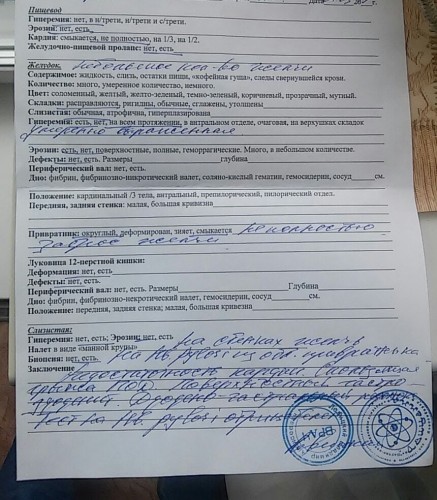 Пищевод
Гиперемия: нет, в н/трети, н/трети и с/трети.
Эрозии: нет, есть
Кардия: смыкается, не полностью, на 1/3, на 1/2.
Желудочно-пищевой пролапс: нет, есть
Желудок. небольшое кол-во желчи
Содержимое: жидкость, слизь, остатки пищи, «кофейная гуща», следы свернувшейся крови.
Количество: много, умеренное количество, немного.
Цвет: соломенный, желтый, желто-зеленый, темно-зеленый, коричневый, прозрачный, мутный.
Складки: расправляются, ригидны, обычные, сглажены, утолщены
Слизистая: обычная, атрофична, гиперплазирована
Гиперемия: есть, нет, на всем протяжении, в антральном отделе, очаговая, на верхушках складок
умеренно выраженная
Эрозии: есть, нет, поверхностные, полные, геморрагические. Много, в небольшом количестве.
Дефекты: нет, есть. Размеры глубина
Периферический вал: нет, есть.
Дно: фибрин, фибринозно-некротический налет, соляно-кислый гематин, гемосидерин, сосуд см.
Положение: кардинальный /3 тела, антральный, препилорический, пилорический отдел.
Передняя, задняя стенка: малая, большая кривизна
Привратник: округлый, деформирован, зияет, смыкается не полностью
заброс желчи
Луковица 12-перстной кишки:
Деформация: нет, есть
Дефекты: нет, есть.
Периферический вал: нет, есть. Размеры Глубина
Дно: фибрин, фибринозно-некротический налет, гемосидерин, сосуд см.
Положение: передняя, задняя стенка: малая, большая кривизна
Слизистая:
Гиперемия: нет, есть; Эрозии: нет, есть на стенках желчь
Налет в виде «манной крупы»
Биопсия: нет, есть. на Нв. pylori из обл. привратника
Заключение Недостаточность кардии. Скользящая
грыжа ПОД. Поверхностный гастро-
дуоденит. Дуодено-гастральный
Тест на Нв. pylori отриц
ВРАЧ